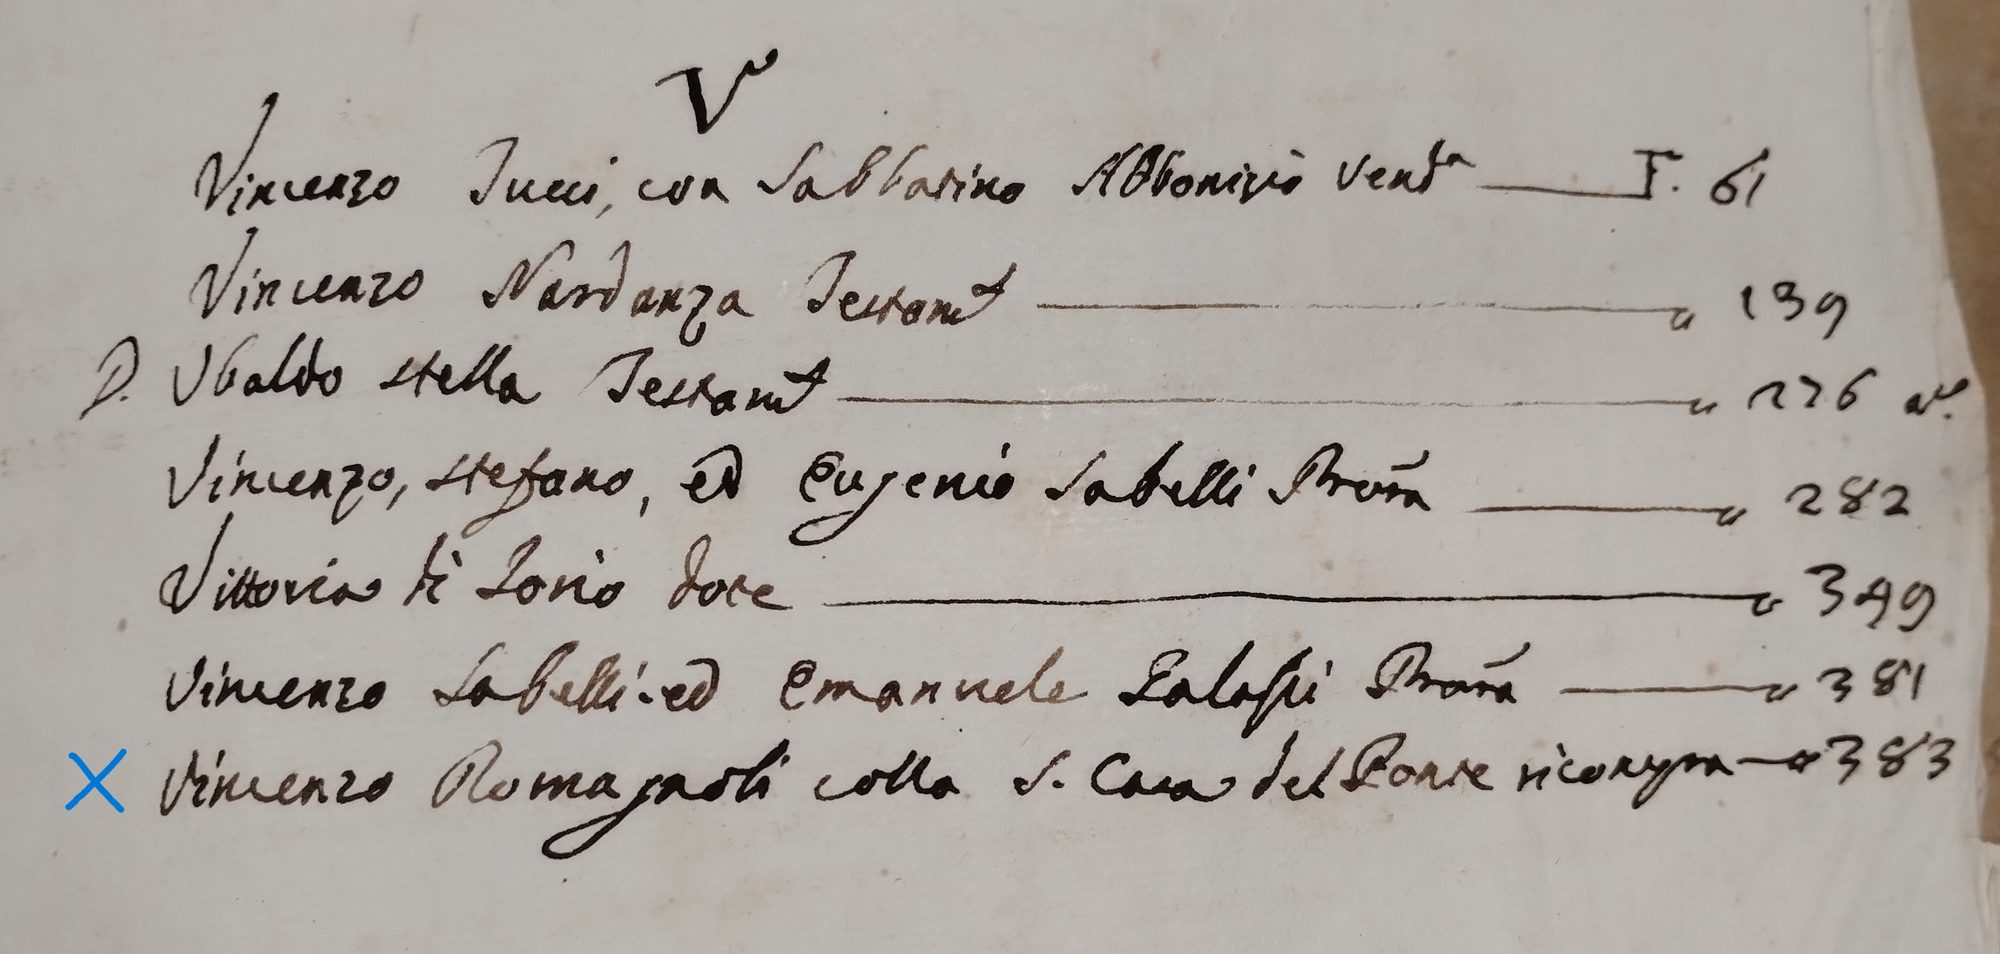 V
Vincenzo Jucci, con Sabbatino Abbonizio Vend.a F. 61
Vincenzo Nardanza Testam.t " 139
D. Ubaldo Stella Testam.t " 226
Vincenzo, Stefano, ed Eugenio Sabelli " 282
Vittoria di Iorio dote " 349
Vincenzo Sabelli ed Emanuele " 381
Vincenzo Romagnoli colla S. Casa del Ponte ricompra " 383